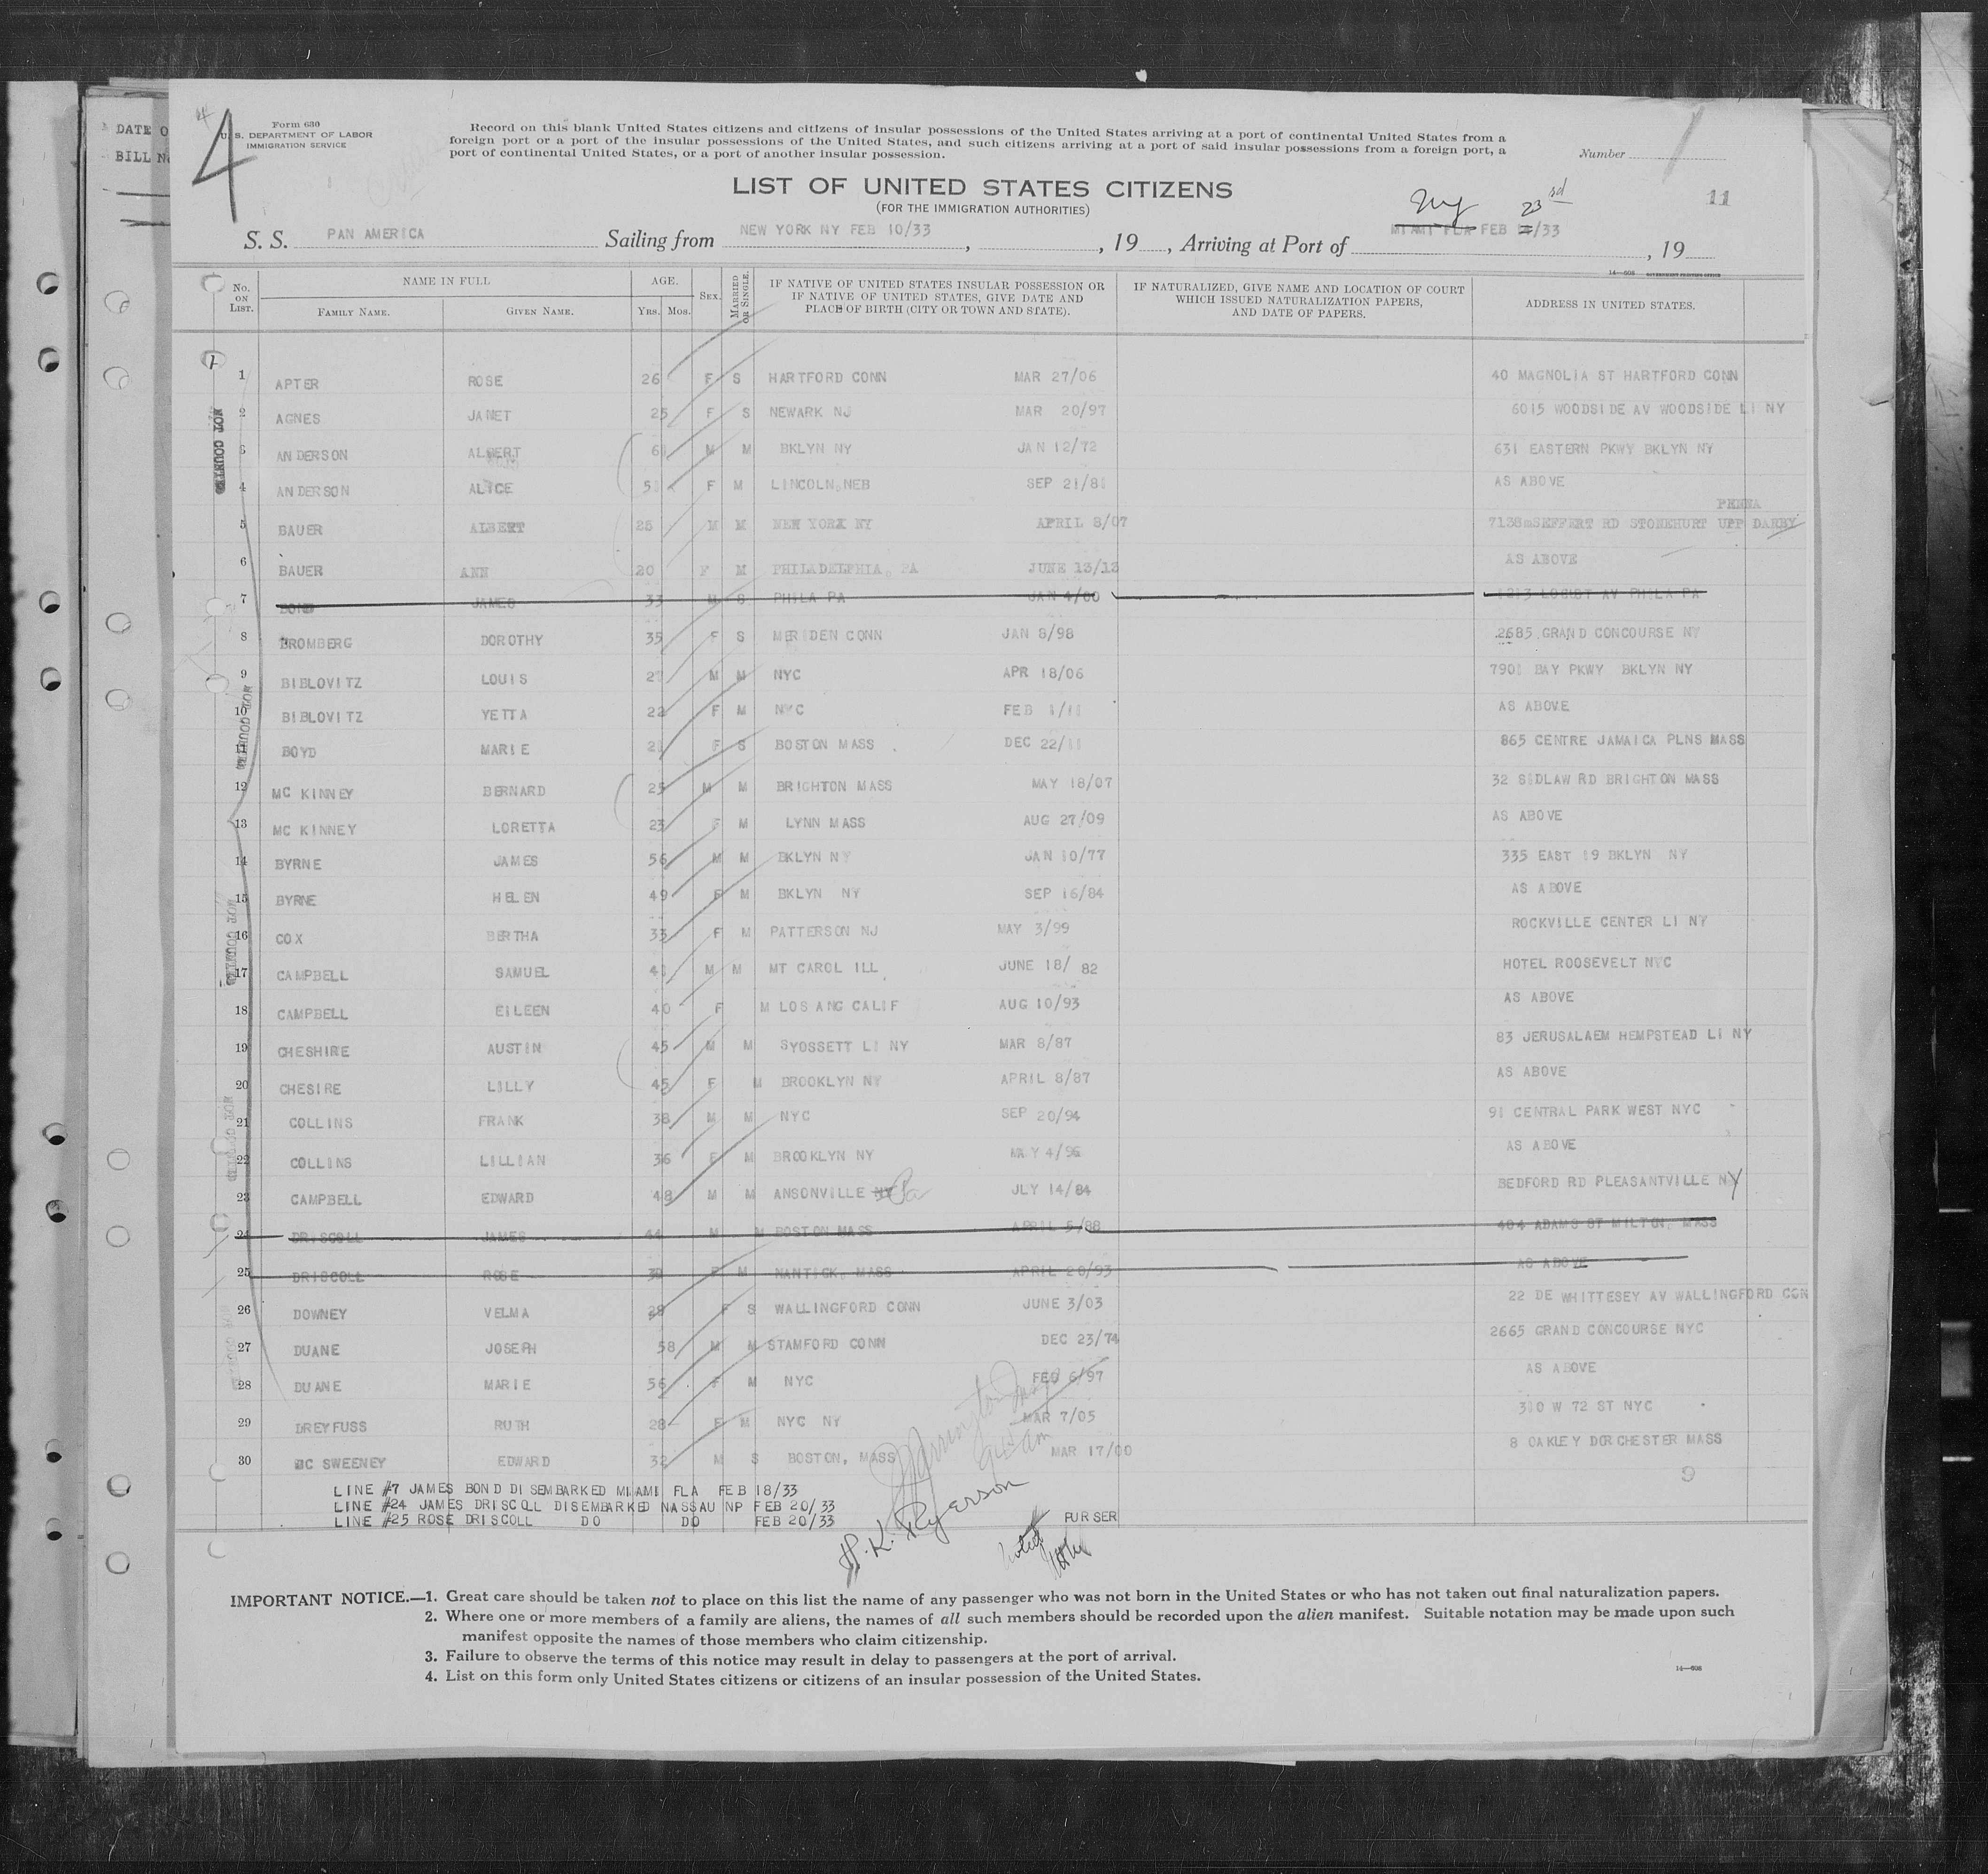 DATE O
BILL N
4
Form 630
U. S. DEPARTMENT OF LABOR
IMMIGRATION SERVICE
Record on this blank United States citizens and citizens of insular possessions of the United States arriving at a port of continental United States from a
foreign port or a port of the insular possessions of the United States, and such citizens arriving at a port of said insular possessions from a foreign port, a
port of continental United States, or a port of another insular possession.
Number
LIST OF UNITED STATES CITIZENS
(FOR THE IMMIGRATION AUTHORITIES)
11
S. S. PAN AMERICA Sailing from NEW YORK NY FEB 10/33, , 19 , Arriving at Port of MIAMI FLA NY FEB 23rd /33 , 19
14—608 GOVERNMENT PRINTING OFFICE
No. ON LIST. NAME IN FULL FAMILY NAME. GIVEN NAME. AGE. YRS. MOS. SEX. MARRIED OR SINGLE. IF NATIVE OF UNITED STATES INSULAR POSSESSION OR IF NATIVE OF UNITED STATES, GIVE DATE AND PLACE OF BIRTH (CITY OR TOWN AND STATE). IF NATURALIZED, GIVE NAME AND LOCATION OF COURT WHICH ISSUED NATURALIZATION PAPERS, AND DATE OF PAPERS. ADDRESS IN UNITED STATES.
1 APTER ROSE 26 F S HARTFORD CONN MAR 27/06 40 MAGNOLIA ST HARTFORD CONN
2 AGNES JANET 25 F S NEWARK NJ MAR 20/97 6015 WOODSIDE AV WOODSIDE LI NY
3 ANDERSON ALBERT 61 M M BKLYN NY JAN 12/72 631 EASTERN PKWY BKLYN NY
4 ANDERSON ALICE 51 F M LINCOLN, NEB SEP 21/81 AS ABOVE
PENNA
5 BAUER ALBERT 25 M M NEW YORK NY APRIL 8/07 7138mSEFFERT RD STONEHURT UPP DARBY
6 BAUER ANN 20 F M PHILADELPHIA, PA JUNE 13/13 AS ABOVE
7 BOND JAMES 33 M S PHILA PA JAN 4/00 1213 LOCUST AV PHILA PA
8 BROMBERG DOROTHY 35 F S MERIDEN CONN JAN 8/98 2685 GRAND CONCOURSE NY
9 BIBLOVITZ LOUIS 27 M M NYC APR 18/06 7901 BAY PKWY BKLYN NY
10 BIBLOVITZ YETTA 22 F M NYC FEB 1/11 AS ABOVE
11 BOYD MARIE 21 F S BOSTON MASS DEC 22/11 865 CENTRE JAMAICA PLNS MASS
12 MC KINNEY BERNARD 25 M M BRIGHTON MASS MAY 18/07 32 SIDLAW RD BRIGHTON MASS
13 MC KINNEY LORETTA 23 F M LYNN MASS AUG 27/09 AS ABOVE
14 BYRNE JAMES 56 M M BKLYN NY JAN 10/77 335 EAST 19 BKLYN NY
15 BYRNE HELEN 49 F M BKLYN NY SEP 16/84 AS ABOVE
16 COX BERTHA 33 F M PATTERSON NJ MAY 3/99 ROCKVILLE CENTER LI NY
17 CAMPBELL SAMUEL 41 M M MT CAROL ILL JUNE 18/ 82 HOTEL ROOSEVELT NYC
18 CAMPBELL EILEEN 40 F M LOS ANG CALIF AUG 10/93 AS ABOVE
19 CHESHIRE AUSTIN 45 M M SYOSSETT LI NY MAR 8/87 83 JERUSALAEM HEMPSTEAD LI NY
20 CHESIRE LILLY 45 F M BROOKLYN NY APRIL 8/87 AS ABOVE
21 COLLINS FRANK 38 M M NYC SEP 20/94 91 CENTRAL PARK WEST NYC
22 COLLINS LILLIAN 36 F M BROOKLYN NY MAY 4/96 AS ABOVE
23 CAMPBELL EDWARD 48 M M ANSONVILLE NY Pa JLY 14/84 BEDFORD RD PLEASANTVILLE NY
24 DRISCOLL JAMES 44 M M BOSTON MASS APRIL 5/88 484 ADAMS ST MILTON, MASS
25 DRISCOLL ROSE 39 F M NANTICK, MASS APRIL 20/93 AS ABOVE
26 DOWNEY VELMA 29 F S WALLINGFORD CONN JUNE 3/03 22 DE WHITTESEY AV WALLINGFORD CON
27 DUANE JOSEPH 58 M M STAMFORD CONN DEC 23/74 2665 GRAND CONCOURSE NYC
28 DUANE MARIE 56 F M NYC FEB 6/97 AS ABOVE
29 DREYFUSS RUTH 28 F M NYC NY MAR 7/05 310 W 72 ST NYC
30 MC SWEENEY EDWARD 32 M S BOSTON, MASS MAR 17/00 8 OAKLEY DORCHESTER MASS
9
LINE #7 JAMES BOND DISEMBARKED MIAMI FLA FEB 18/33
LINE #24 JAMES DRISCOLL DISEMBARKED NASSAU NP FEB 20/33
LINE #25 ROSE DRISCOLL DO DO FEB 20/33
H. K. Ryerson PURSER
IMPORTANT NOTICE.—1. Great care should be taken not to place on this list the name of any passenger who was not born in the United States or who has not taken out final naturalization papers.
2. Where one or more members of a family are aliens, the names of all such members should be recorded upon the alien manifest. Suitable notation may be made upon such
manifest opposite the names of those members who claim citizenship.
3. Failure to observe the terms of this notice may result in delay to passengers at the port of arrival.
4. List on this form only United States citizens or citizens of an insular possession of the United States.
14—608